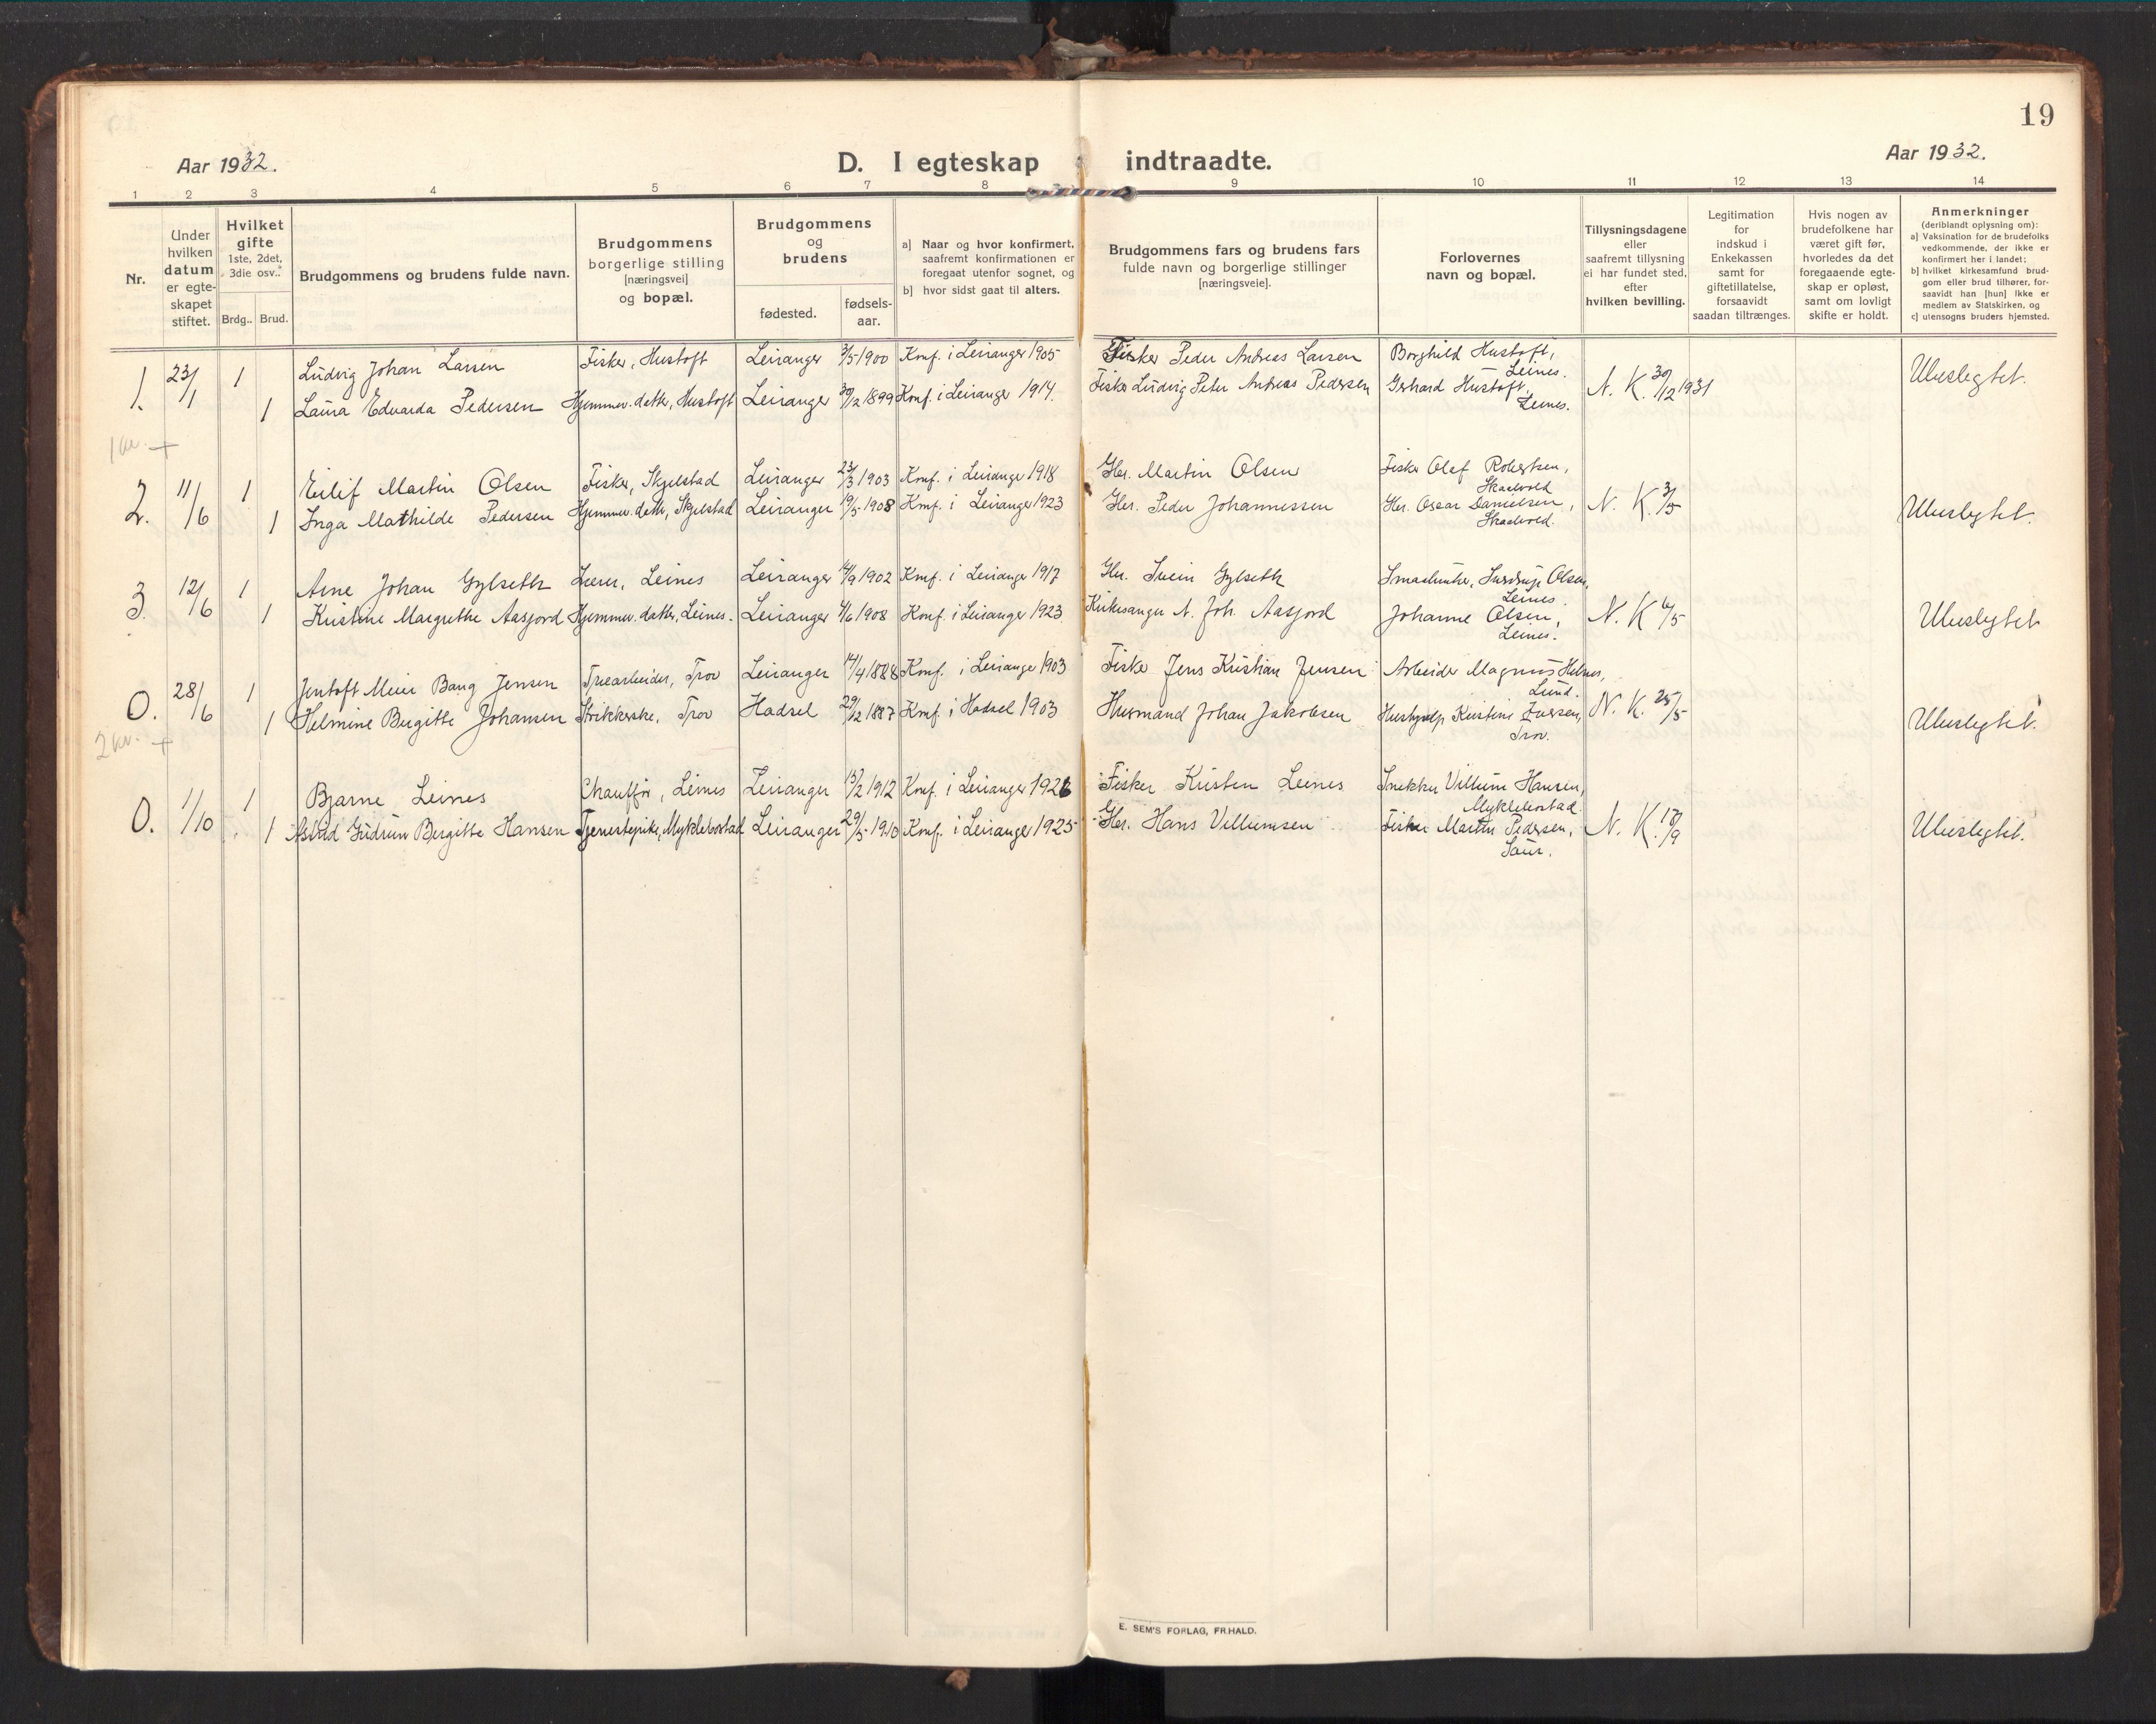 19
Aar 1932.
D. I egteskap indtraadte.
Aar 1932.
1 2 3 4 5 6 7 8 9 10 11 12 13 14
Nr.
Under
hvilken
datum
er egte-
skapet
stiftet.
Hvilket
gifte
1ste, 2det,
3die osv..
Brdg.. Brud.
Brudgommens og brudens fulde navn.
Brudgommens
borgerlige stilling
[næringsvei]
og bopæl.
Brudgommens
og
brudens
fødested.
fødsels-
aar.
a] Naar og hvor konfirmert,
saafremt konfirmationen er
foregaat utenfor sognet, og
b] hvor sidst gaat til alters.
Brudgommens fars og brudens fars
fulde navn og borgerlige stillinger
[næringsveie].
Forlovernes
navn og bopæl.
Tillysningsdagene
eller
saafremt tillysning
ei har fundet sted,
efter
hvilken bevilling.
Legitimation
for
indskud i
Enkekassen
samt for
giftetillatelse,
forsaavidt
saadan tiltrænges.
Hvis nogen av
brudefolkene har
været gift før,
hvorledes da det
foregaaende egte-
skap er opløst,
samt om lovligt
skifte er holdt.
Anmerkninger
(deriblandt oplysning om):
a] Vaksination for de brudefolks
vedkommende, der ikke er
konfirmert her i landet;
b] hvilket kirkesamfund brud-
gom eller brud tilhører, for-
saavidt han [hun] ikke er
medlem av Statskirken, og
c] utensogns bruders hjemsted.
1. 23/1 1 Ludvig Johan Larsen Fisker, Hustoft Leiranger 3/5 1900 Konf. i Leiranger 1905 Fisker Peder Andreas Larsen Borghild Hustoft, Leines. N. K. 30/12 1931 Ubeslegtet.
1 Laura Edvarda Pedersen Hjemmev. datter, Hustoft Leiranger 30/2 1899 Konf. i Leiranger 1914. Fisker Ludvig Peter Andreas Pedersen Gerhard Hustoft, Leines.
1 kv. +
2. 11/6 1 Eilif Martin Olsen Fisker, Skjelstad Leiranger 23/3 1903 Konf. i Leiranger 1918 Gbr. Martin Olsen Fisker Olef Robertsen, Skaelvold N. K. 3/5 Ubeslegtet.
1 Inga Mathilde Pedersen Hjemmev. datter, Skjelstad Leiranger 19/5 1908 Konf. i Leiranger 1923 Gbr. Peder Johannessen Gbr. Oscar Danielsen, Skaelvold.
3. 12/6 1 Arne Johan Gylseth Lærer, Leines Leiranger 14/9 1902 Konf. i Leiranger 1917 Gbr. Svein Gylseth Smaabruker, Olsen, Leines. N. K 6/5 Ubeslegtet
1 Kristine Margrethe Aasjord Hjemmev. datter, Leines. Leiranger 4/6 1908 Konf. i Leiranger 1923 Kirkesanger N. Joh. Aasjord Johanne Olsen, Leines.
0. 28/6 1 Jentoft Meier Bang Jensen Træarbeider, Trov Leiranger 14/4 1888 Konf. i Leiranger 1903 Fisker Jens Kristian Jensen Arbeider Magnus Helnes, Lund. N. K. 25/5 Ubeslegtet.
1 Helmine Bergitte Johansen Strikkerske, Trov Hadsel 29/12 1887 Konf. i Hadsel 1903 Husmand Johan Jakobsen Hushjelp Kristine Iversen, Trov.
2 kv. +
0. 1/10 1 Bjarne Leines Chauffør, Leines Leiranger 13/2 1912 Konf. i Leiranger 1926 Fisker Kristen Leines Snekker Villum Hansen, Myklebostad N. K. 18/9 Ubeslegtet.
1 Astrid Gudrun Bergitte Hansen Tjenestepike, Myklebostad Leiranger 29/5 1910 Konf. i Leiranger 1925 Gbr. Hans Villumsen Fisker Martin Pedersen, Saur.
E. SEM'S FORLAG, FR.HALD.